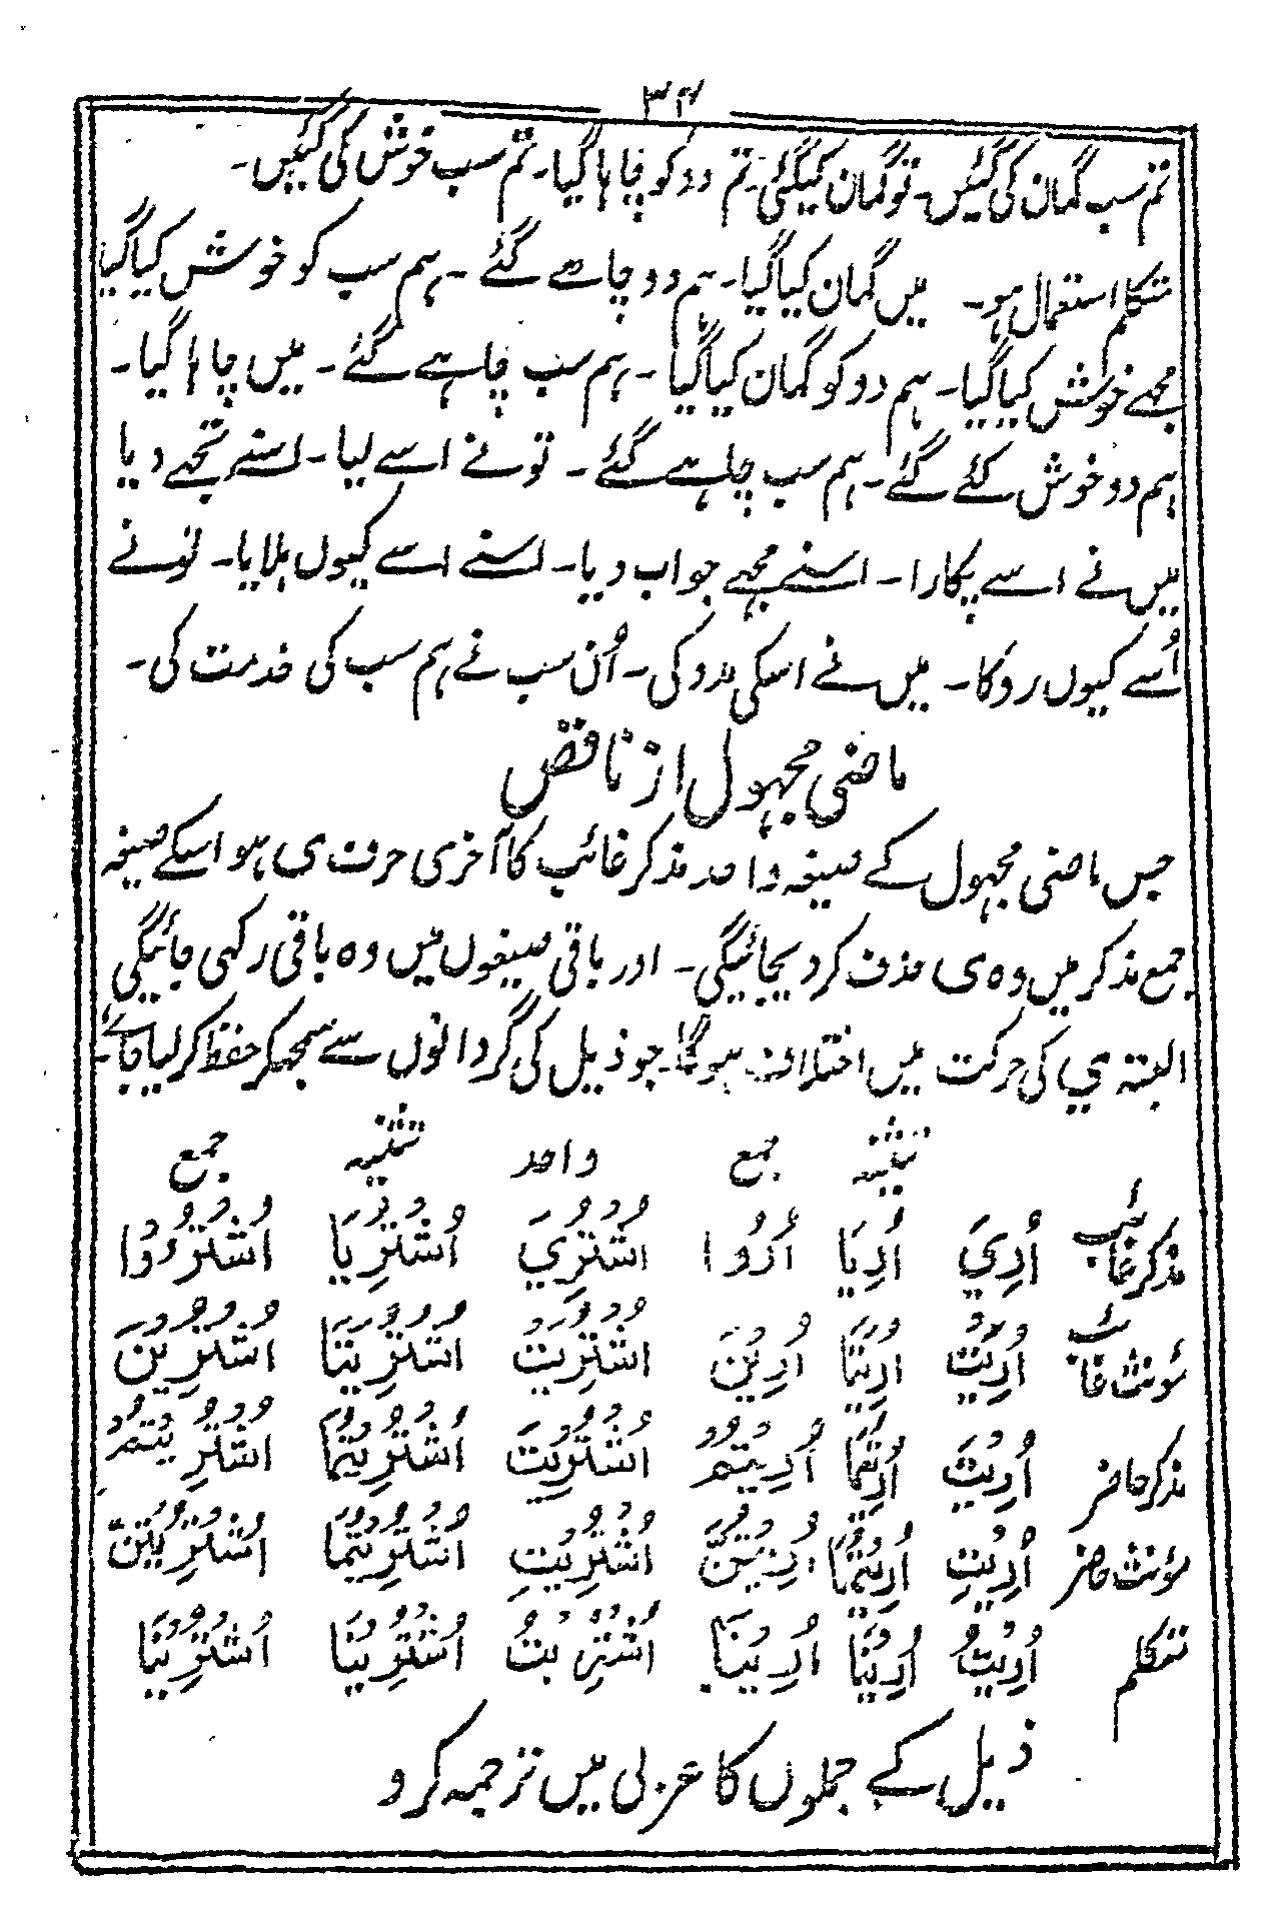 ۳۴
تم سب گمان کی گئیں۔ تو گمان کیگئی۔ تم دو کو چاہا گیا۔ تم سب خوش کی گئیں۔
متکلم استعمال ہو۔ میں گمان کیا گیا۔ ہم دو چاہے گئے۔ ہم سب کو خوش کیا گیا
مجھے خوش کیا گیا۔ ہم دو کو گمان کیا گیا۔ ہم سب چاہے گئے۔ میں چاہا گیا۔
ہم دو خوش کئے گئے۔ ہم سب چاہے گئے۔ تونے اسے لیا۔ اسنے تجھے دیا
میں نے اسے پکارا۔ اسنے مجھے جواب دیا۔ اسنے اسے کیوں ہلایا۔ تونے
اُسے کیوں روکا۔ میں نے اسکی مدد کی۔ اُن سب نے ہم سب کی خدمت کی۔
ماضی مجہول از ناقص
جس ماضی مجہول کے صیغہ واحد مذکر غائب کا آخری حرف ی ہو اسکے صیغہ
جمع مذکر میں وہ ی حذف کر دیجائیگی۔ اور باقی صیغوں میں وہ باقی رکھی جائیگی
البتہ ي کی حرکت میں اختلاف ہوگا۔ جو ذیل کی گردانوں سے سمجھکر حفظ کر لیا جائے۔
تثنیہ جمع واحد تثنیہ جمع
مذکر غائب اُدِيَ اُدِيَا اُدُوا اُشْتُرِيَ اُشْتُرِيَا اُشْتُرُوا
مونث غائب اُدِيَتْ اُدِيَتَا اُدِيْنَ اُشْتُرِيَتْ اُشْتُرِيَتَا اُشْتُرِيْنَ
مذکر حاضر اُدِيْتَ اُدِيْتُمَا اُدِيْتُمْ اُشْتُرِيْتَ اُشْتُرِيْتُمَا اُشْتُرِيْتُمْ
مونث حاضر اُدِيْتِ اُدِيْتُمَا اُدِيْتُنَّ اُشْتُرِيْتِ اُشْتُرِيْتُمَا اُشْتُرِيْتُنَّ
متکلم اُدِيْتُ اُدِيْنَا اُدِيْنَا اُشْتُرِيْتُ اُشْتُرِيْنَا اُشْتُرِيْنَا
ذیل کے جملوں کا عربی میں ترجمہ کرو